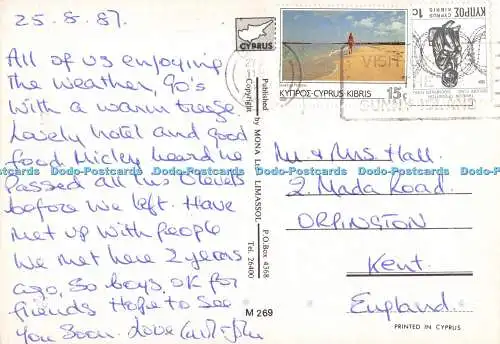 25.8.87.
All of us enjoying
the weather, 90's
with a warm breeze.
Lovely hotel and good
food Mickey heard he
passed all his O levels
before we left. Have
met up with people
we met here 2 years
ago, So boys, OK for
friends Hope to See
you Soon. Love
CYPRUS
Copyright
Published by MONA LISA LIMASSOL
P.O.Box 4368
Tel. 26400
M 269
ΚΥΠΡΟΣ-CYPRUS KIBRIS 15c
ΚΥΠΡΟΣ
CYPRUS
KIBRIS
1c
VISIT
Mr & Mrs Hall.
2. Mada Road.
ORPINGTON
Kent.
England.
PRINTED IN CYPRUS
Dodo-Postcards Dodo-Postcards Dodo-Postcards Dodo-Postcards